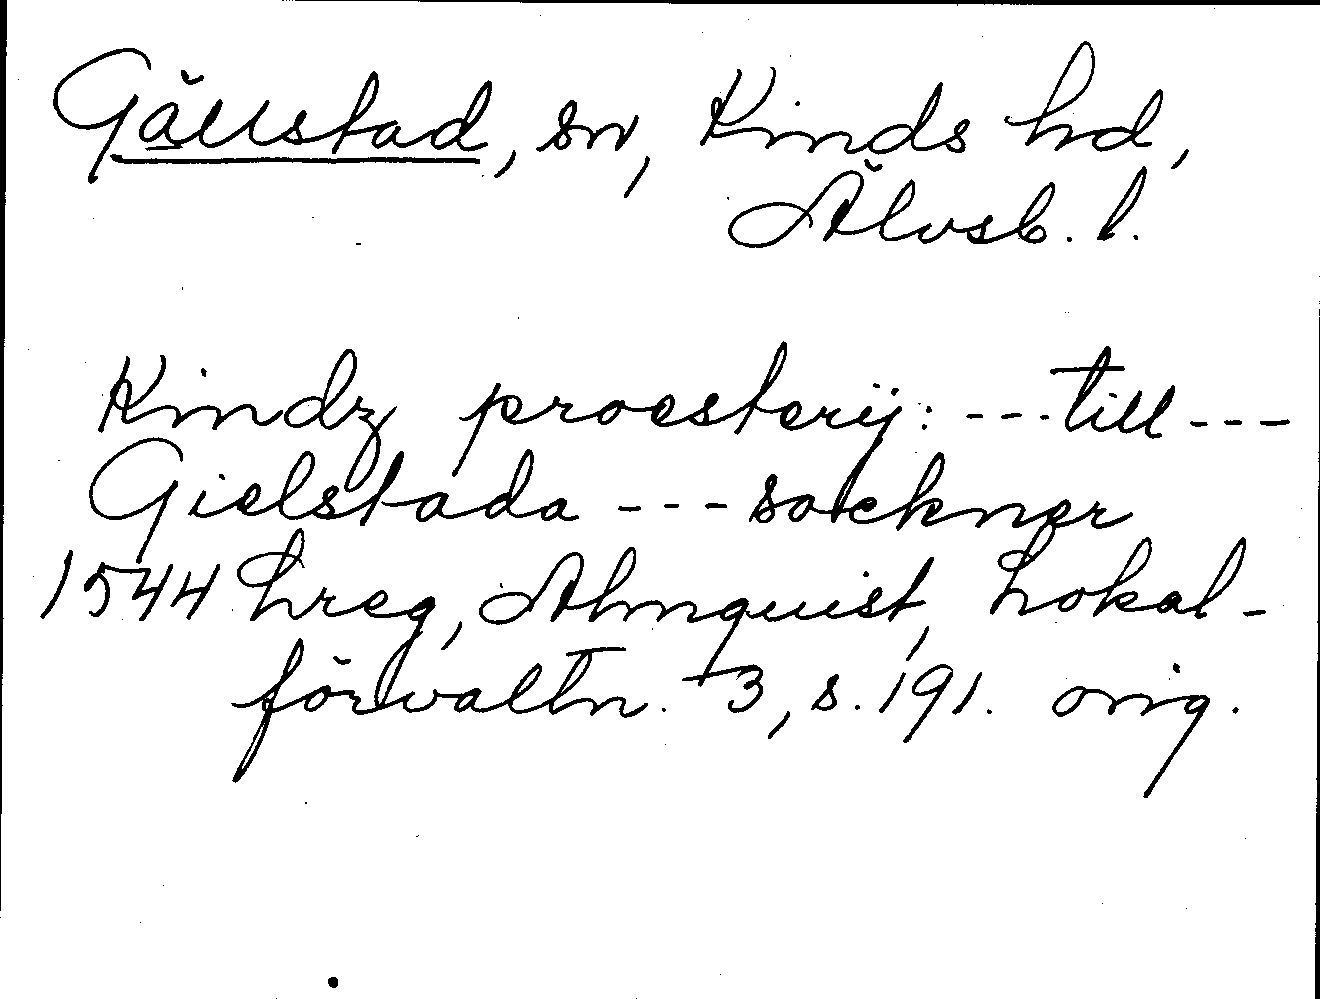 Gällstad, sn, Kinds hd,
Älvsb. l.
Kindz proesterij: --- till ---
Gielstada --- sockner
1544 Lreg, Almquist, Lokal-
förvaltn. 3, s. 191. orig.